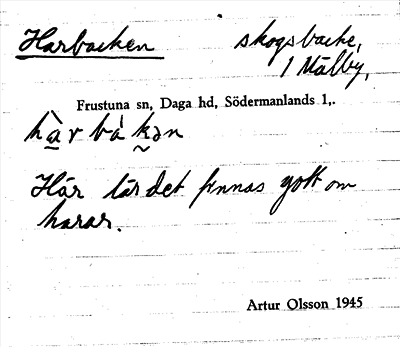 Harbacken skogsbacke,
1 Mälby,
Frustuna sn, Daga hd, Södermanlands l,.
hàrbákən
Här lär det finnas gott om
harar.
Artur Olsson 1945